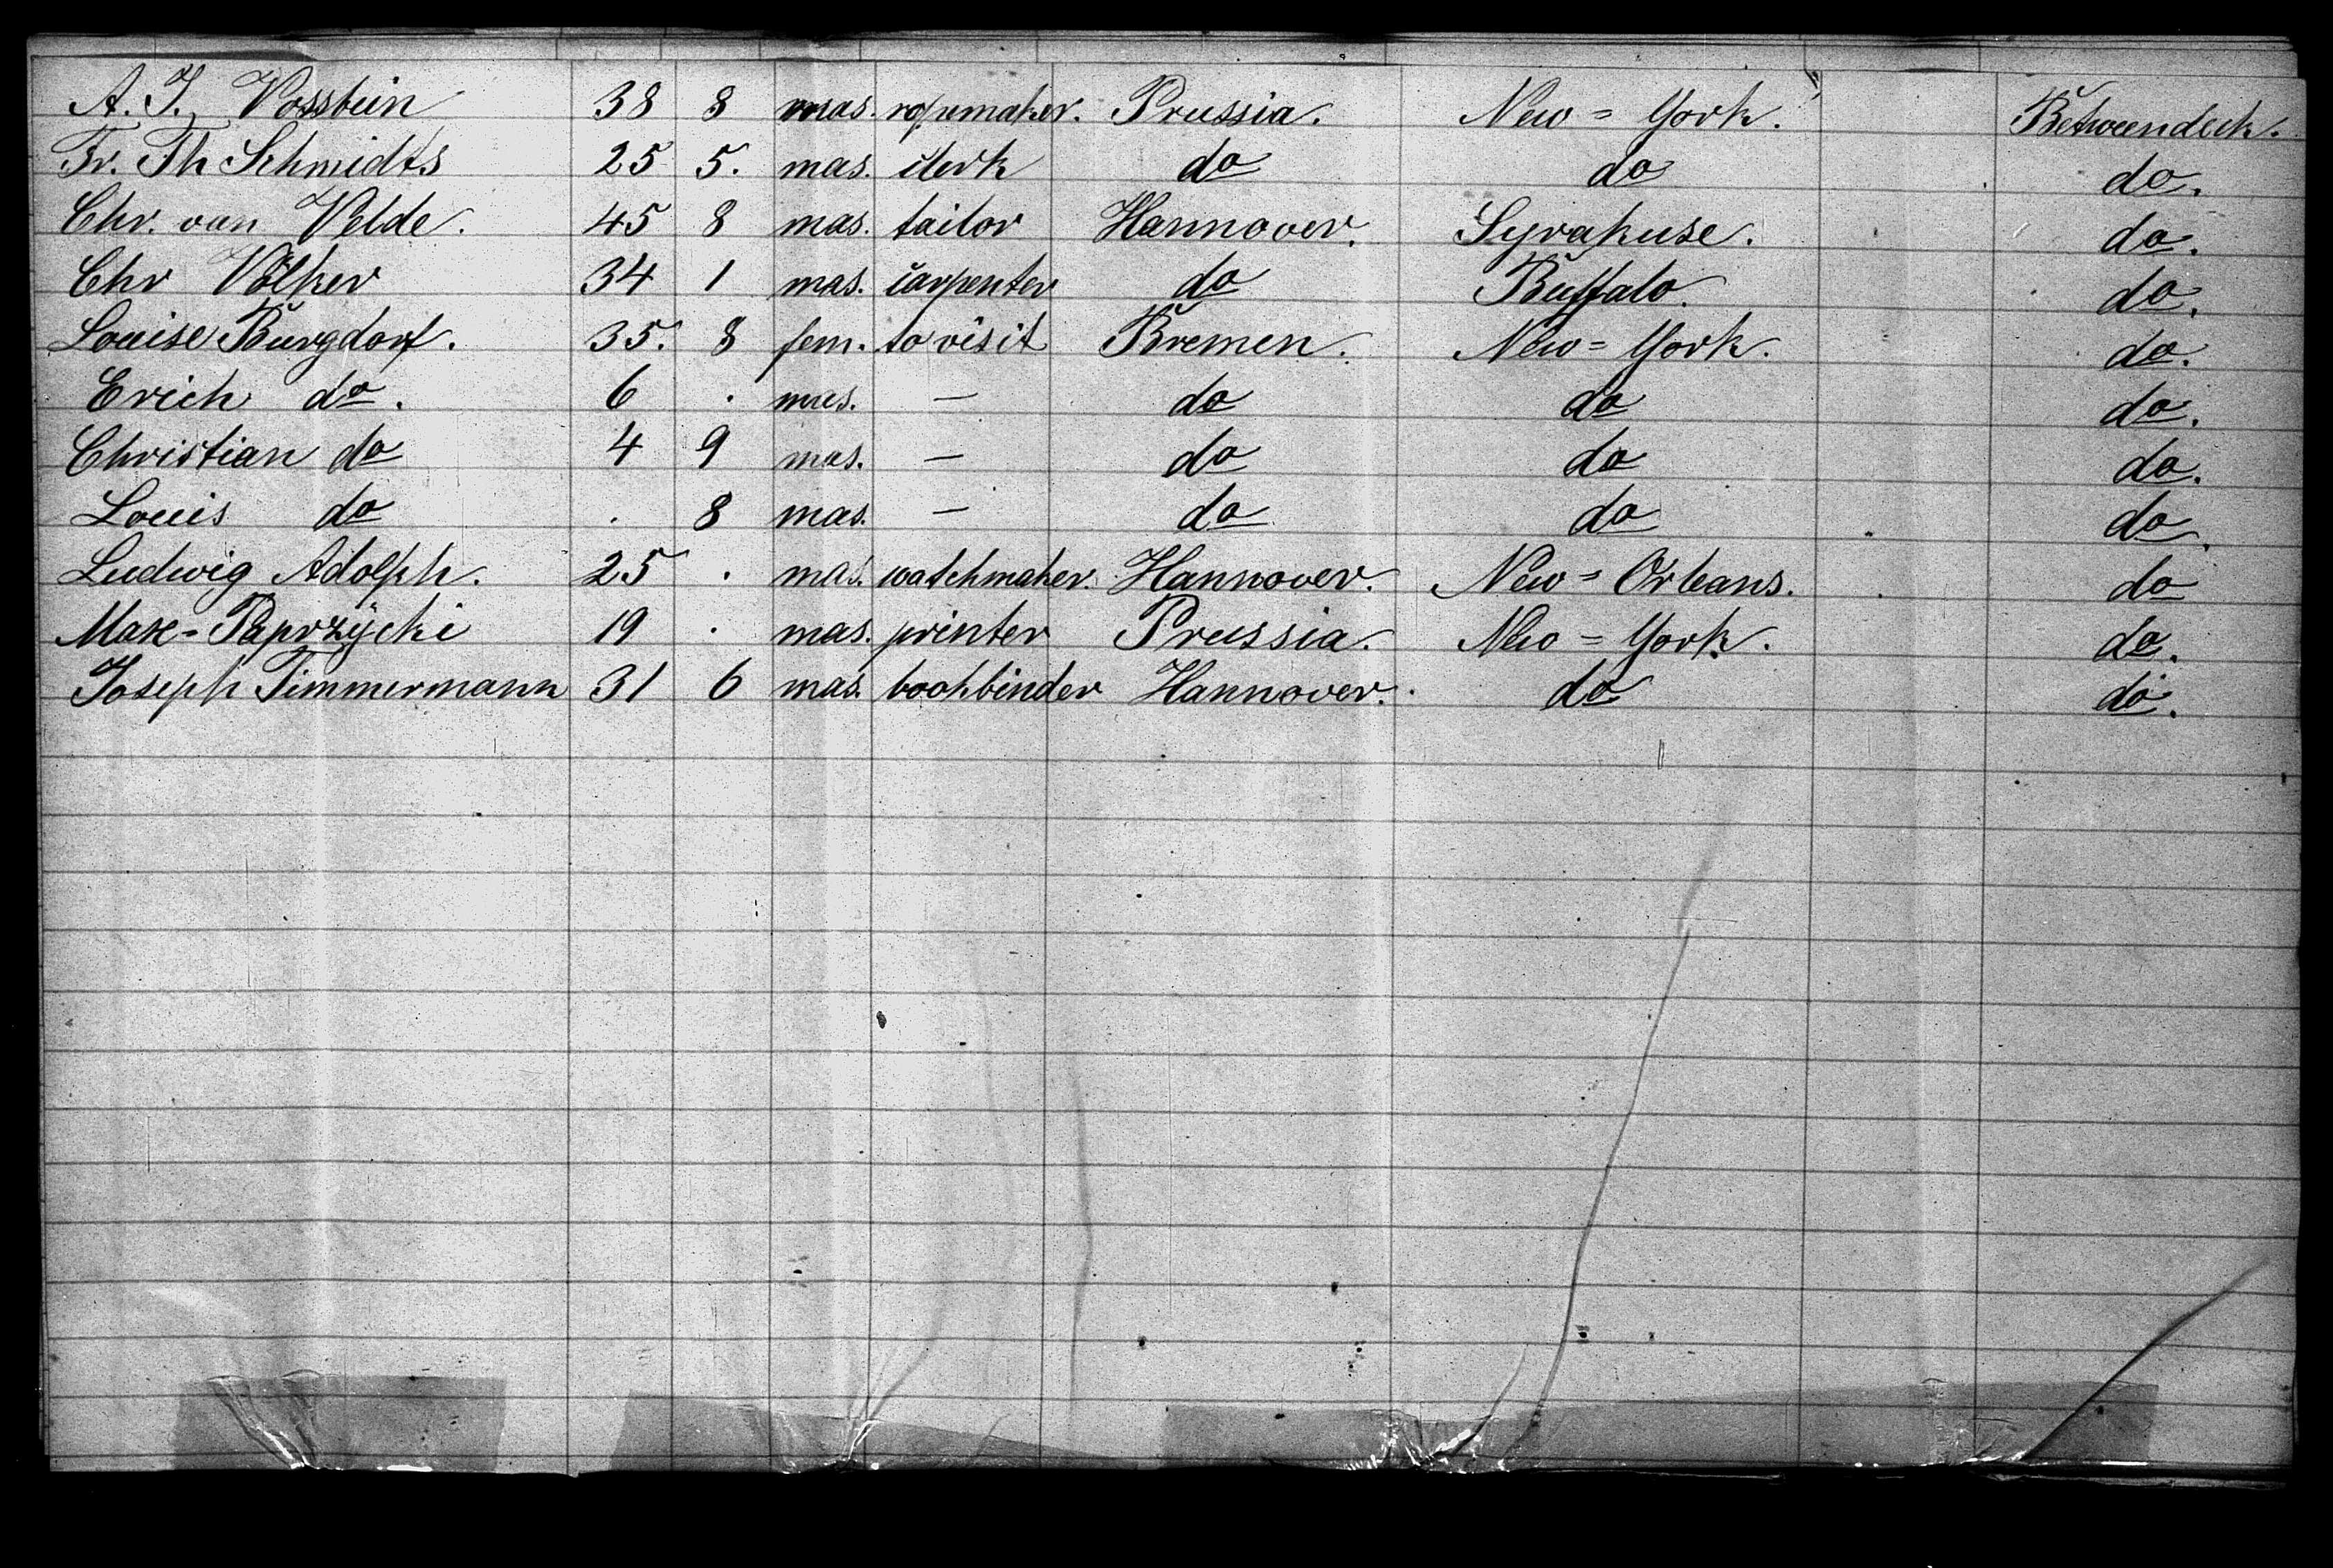 A. J. Vossbein 38 8 mas. ropemaker. Prussia. New = York. Betweendeck.
Fr. Th Schmidts 25 5. mas. clerk do do do.
Chr. van Velde. 45 8 mas. tailor Hannover. Syrakuse. do.
Chr Völker 34 1 mas. carpenter do Buffalo. do.
Louise Burgdorf. 35. 8 fem. to visit Bremen. New = York. do.
Erich do. 6 . mas. — do do do.
Christian do 4 9 mas. — do do do.
Louis do . 8 mas. — do do do.
Ludwig Adolph. 25 . mas. watchmaker. Hannover. New = Orleans. do
Max = Paprzycki 19 . mas. printer Prussia. New = York. do.
Joseph Timmermann 31 6 mas. bookbinder Hannover. do do.